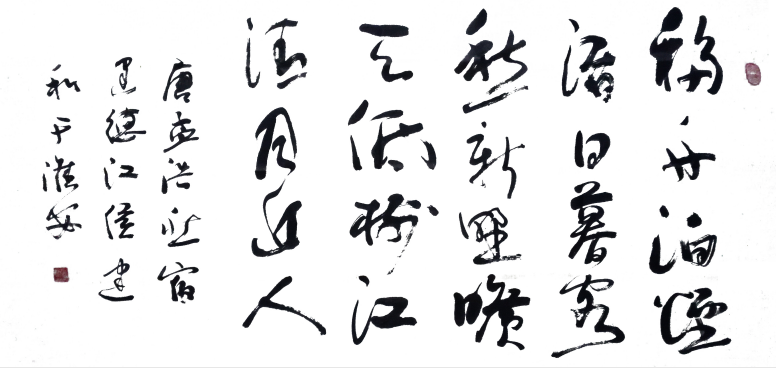 移舟泊烟
渚日暮客
愁新野曠
天低樹江
清月近人
唐孟浩然宿
建德江侯建
和于淮安